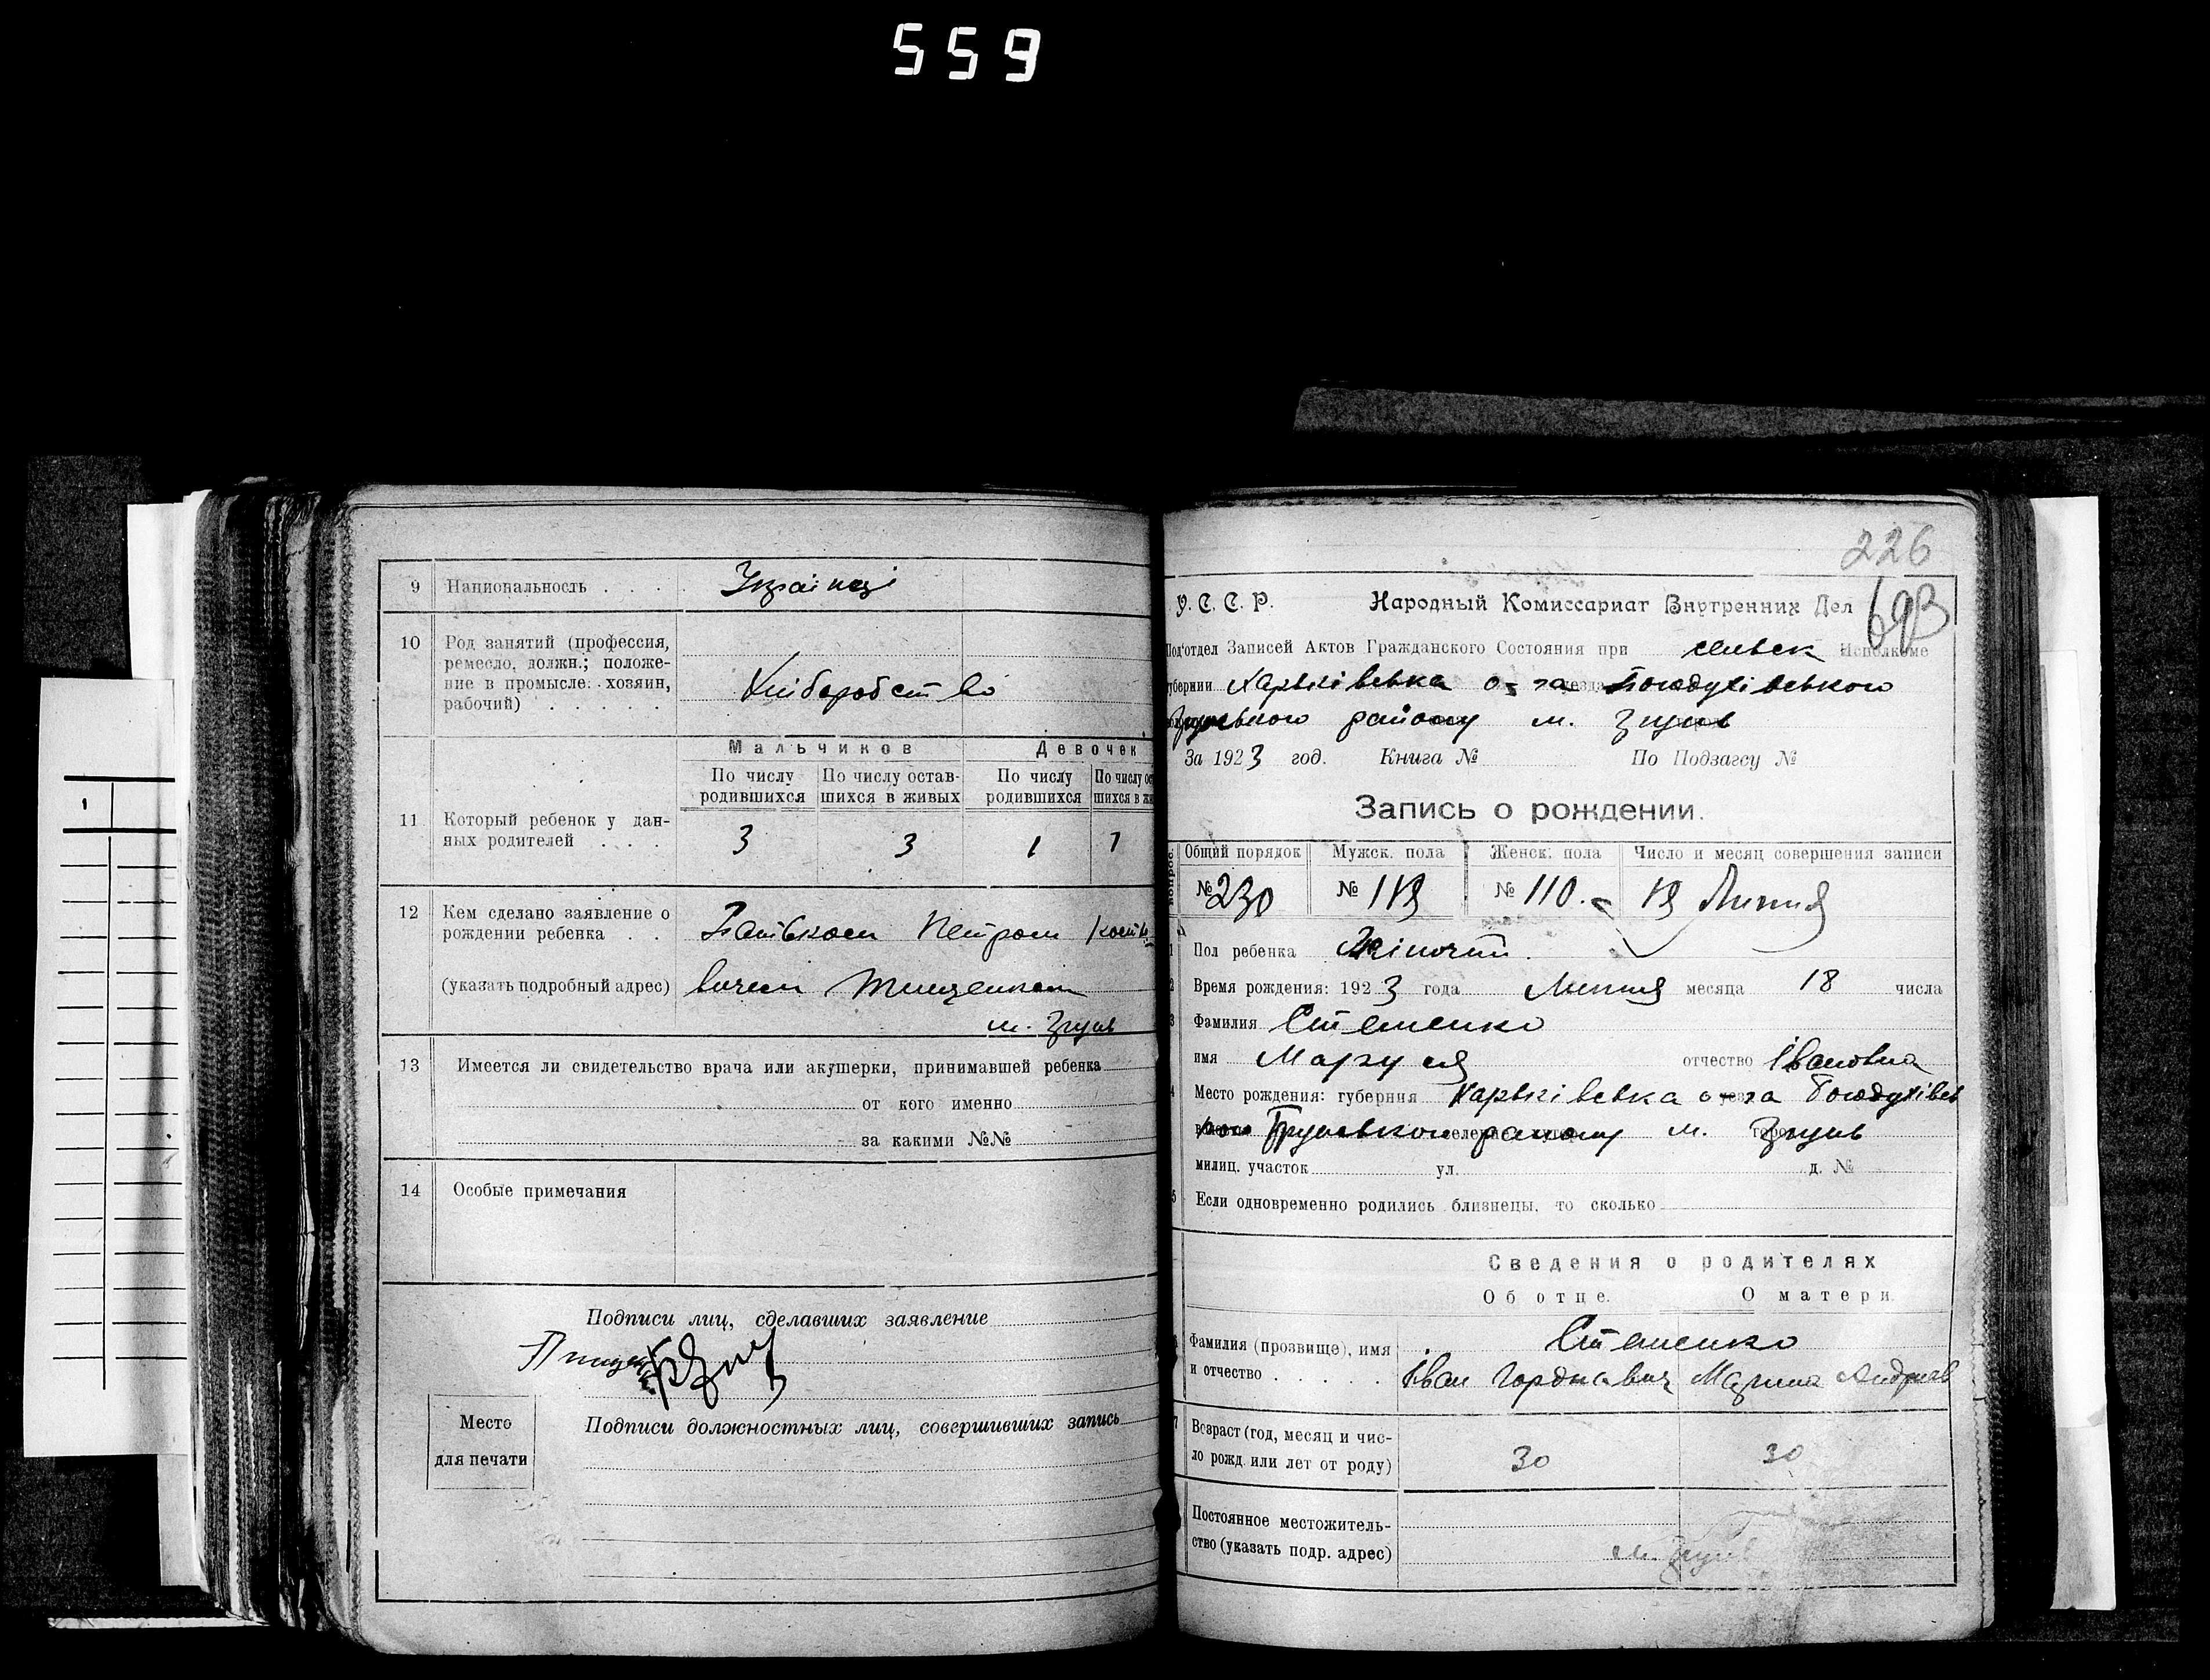 559
9 Национальность . . . . Українці
10 Род занятий (профессия,
ремесло, должн.; положе-
ние в промысле: хозяин,
рабочий) . . . . . Хліборобство
Мальчиков Девочек
По числу родившихся По числу остав-шихся в живых По числу родившихся По числу ос шихся в жи
11 Который ребенок у дан-
ных родителей . . . 3 3 1 1
12 Кем сделано заявление о
рождении ребенка . . Батьком Петром
(указать подробный адрес) вичем Тищенком
м.
13 Имеется ли свидетельство врача или акушерки, принимавшей ребенка
от кого именно
за какими №№
14 Особые примечания
Подписи лиц, сделавших заявление
Место
для печати
Подписи должностных лиц, совершивших запись
226
693
У. С. С. Р. Народный Комиссариат Внутренних Дел
Под'отдел Записей Актов Гражданского Состояния при сільск Исполкоме
губернии Харьківська о-га Богодухівського
району м.
За 1923 год. Книга № По Подзагсу №
Запись о рождении.
Общий порядок Мужск. пола Женск. пола Число и месяц совершения записи
№ 230 № № 110. 19 Липня
Пол ребенка Жіночий.
Время рождения: 1923 года Липня месяца 18 числа
Фамилия Стеценко
имя Маруся отчество Івановна
Место рождения: губерния Харьківська о-га Богодухівсь
району м.
милиц. участок ул. д. №
5 Если одновременно родились близнецы, то сколько
Сведения о родителях
Об отце. О матери.
Фамилия (прозвище), имя Стеценко
и отчество . . . . . Іван Гордіевич Марина Андріів
7 Возраст (год, месяц и чис-
ло рожд. или лет от роду) 30 30
Постоянное местожитель-
ство (указать подр. адрес) м.